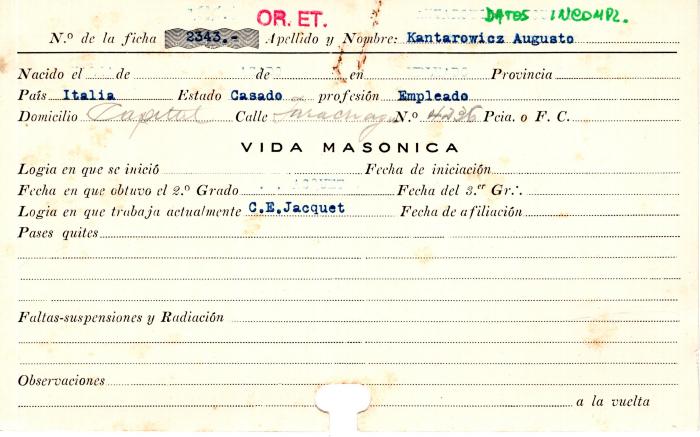 OR. ET. DATOS INCOMPL.
N.º de la ficha 2343.- Apellido y Nombre: Kantarowicz Augusto
Nacido el de de en Provincia
País Italia Estado Casado profesión Empleado
Domicilio Capital Calle N.º 4236 Pcia. o F. C.
VIDA MASONICA
Logia en que se inició Fecha de iniciación
Fecha en que obtuvo el 2.º Grado Fecha del 3.er Gr∴
Logia en que trabaja actualmente C.E.Jacquet Fecha de afiliación
Pases quites
Faltas-suspensiones y Radiación
Observaciones
a la vuelta